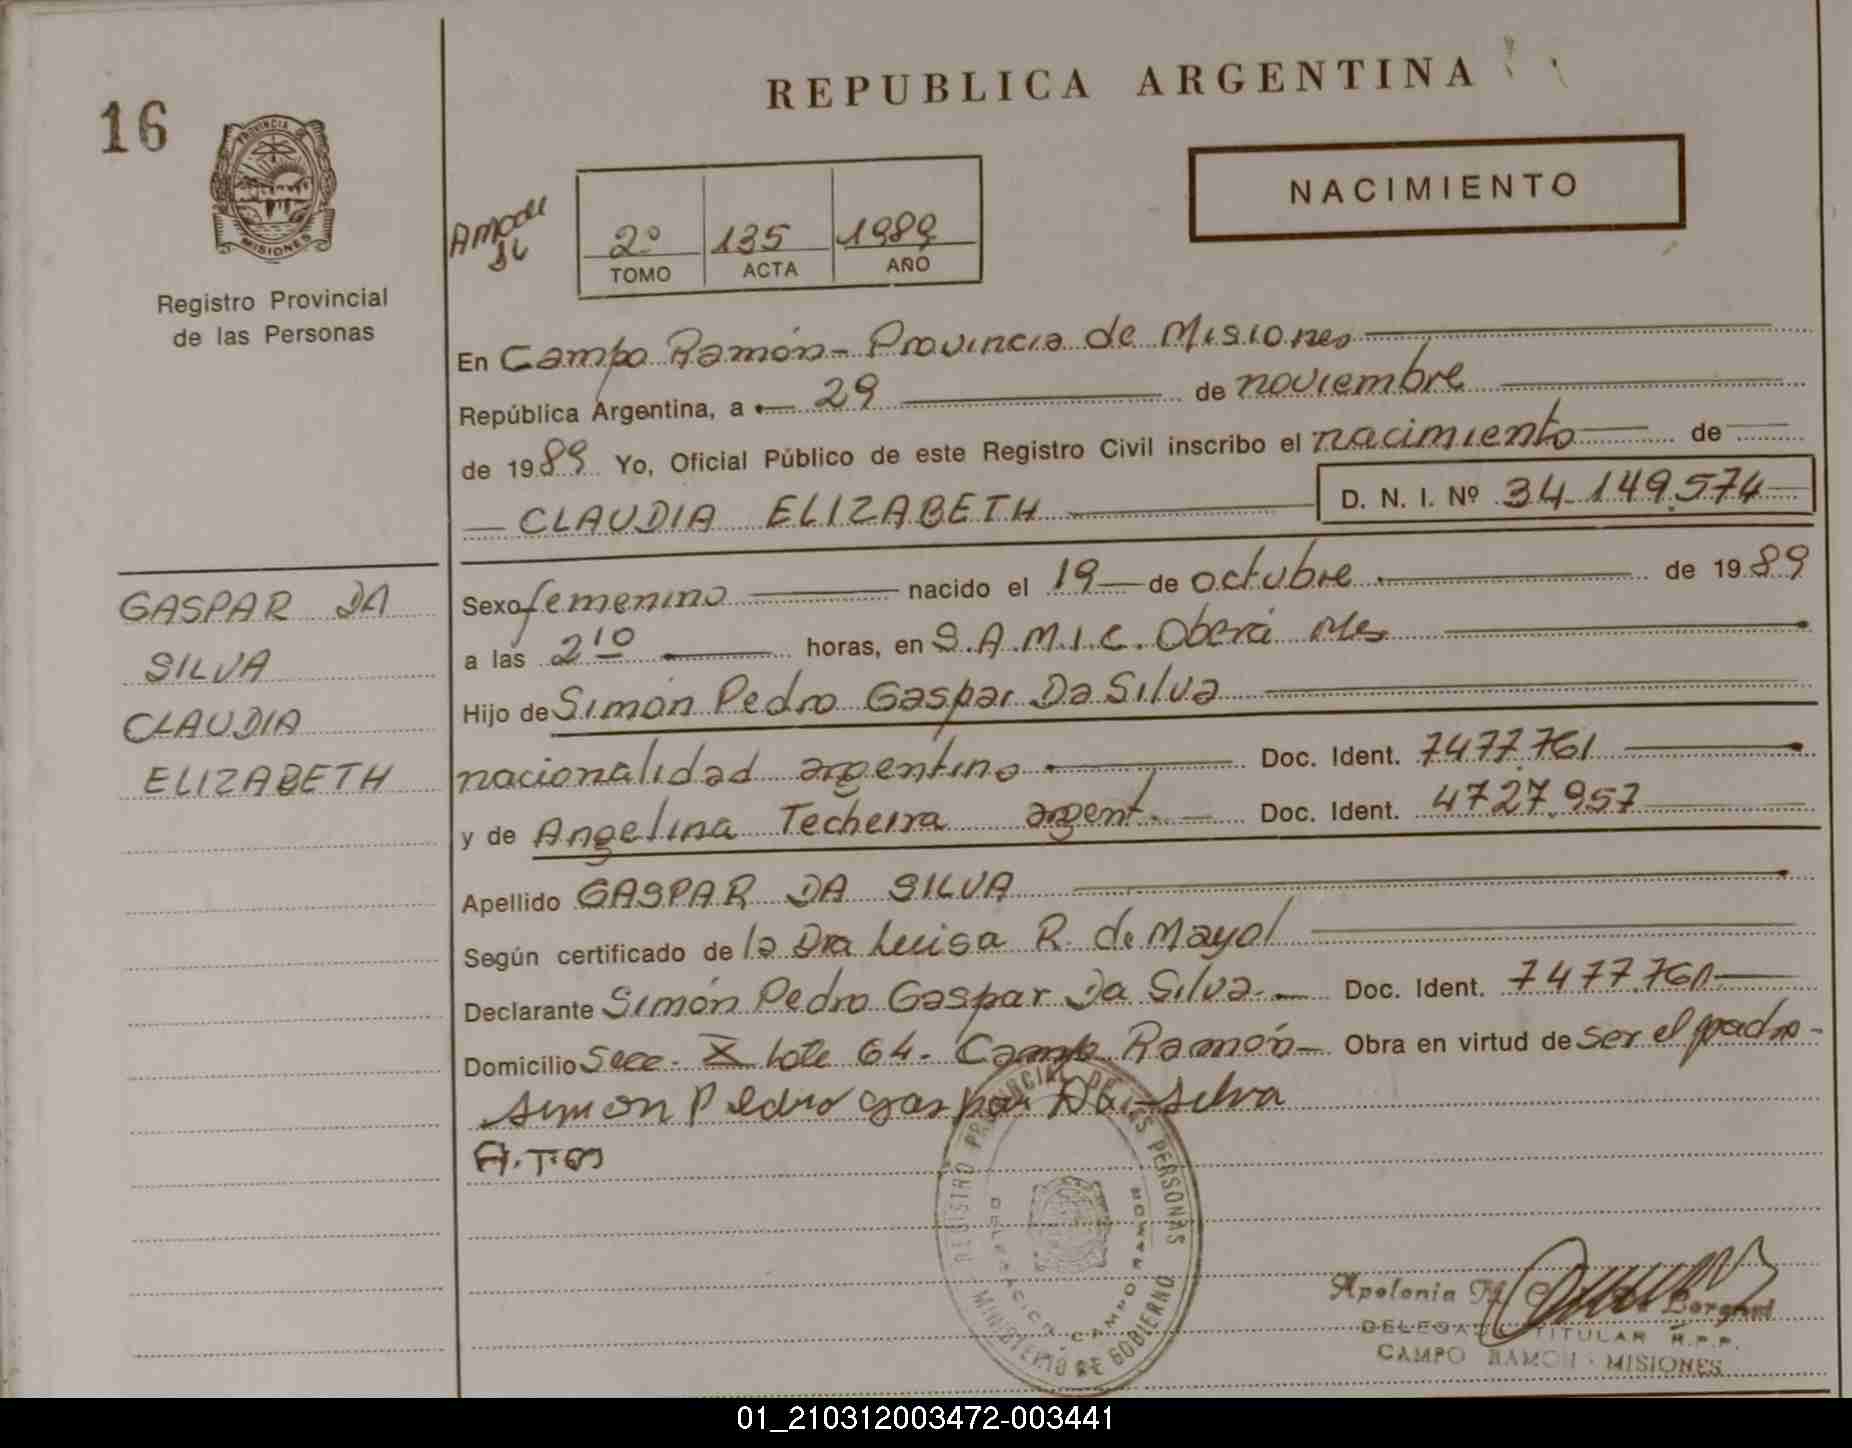 REPUBLICA ARGENTINA
16
PROVINCIA DE
MISIONES
NACIMIENTO
2º 135 1989
TOMO ACTA AÑO
Registro Provincial
de las Personas
En Campo Ramón - Provincia de Misiones
República Argentina, a 29 de noviembre
de 1989 Yo, Oficial Público de este Registro Civil inscribo el nacimiento de
CLAUDIA ELIZABETH D. N. I. Nº 34.149.574
GASPAR DA
SILVA
CLAUDIA
ELIZABETH
Sexo femenino nacido el 19 de octubre de 1989
a las 2 10 horas, en S.A.M.I.C. Oberá Mes
Hijo de Simón Pedro Gaspar Da Silva
nacionalidad argentino Doc. Ident. 7477.761
y de Angelina Techeira argent. Doc. Ident. 4727.957
Apellido GASPAR DA SILVA
Según certificado de la Dra Luisa R. de Mayol
Declarante Simón Pedro Gaspar Da Silva. Doc. Ident. 7477.761
Domicilio Secc. X lote 64 - Campo Ramón Obra en virtud de ser el padre -
simon Pedro gaspar Da silva
REGISTRO PROVINCIAL DE LAS PERSONAS
DELEGACION CAMPO RAMON
MINISTERIO DE GOBIERNO
Apolonia
DELEGADA TITULAR R.P.P.
CAMPO RAMON - MISIONES
01_210312003472-003441